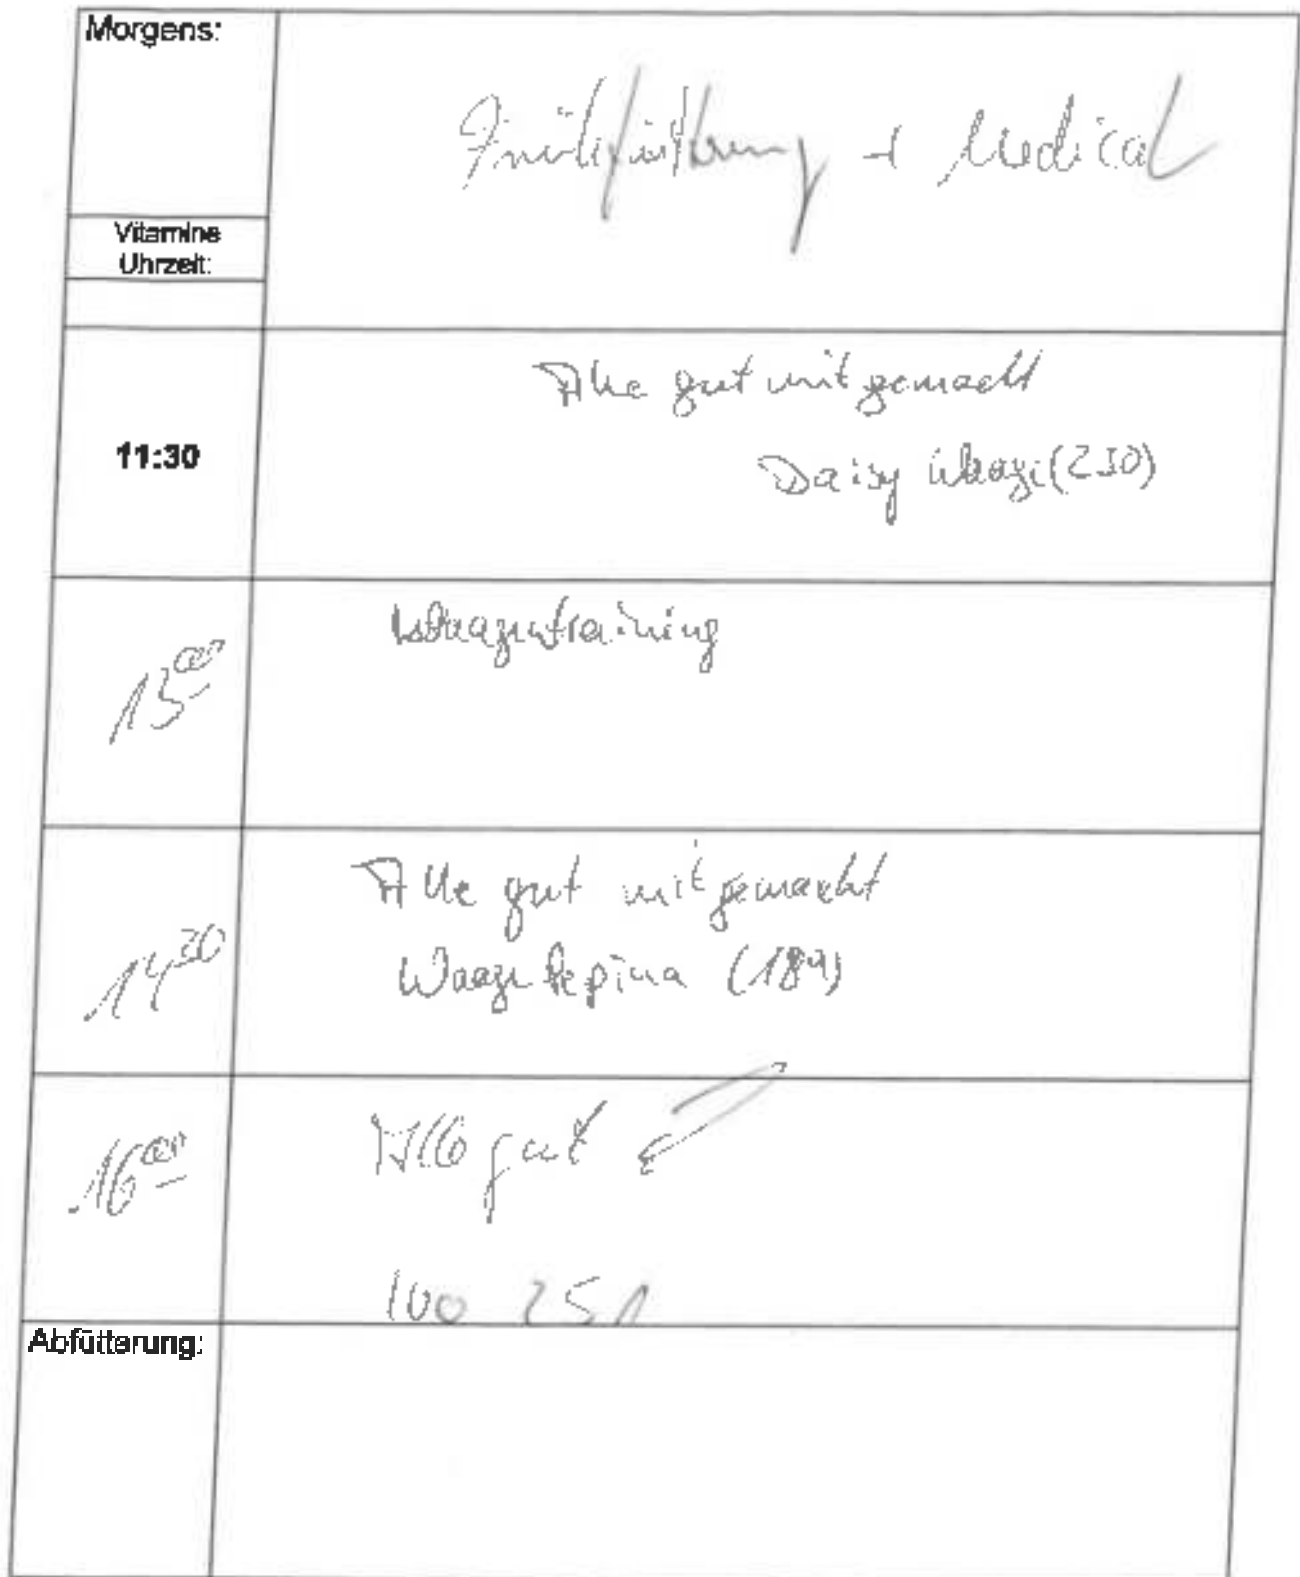 Morgens:
Frühfütterung + Medical
Vitamine
Uhrzeit:
11:30
Alle gut mitgemacht
Daisy Waage (230)
13⁰⁰
Waagentraining
14³⁰
Alle gut mitgemacht
Waage Pepina (189)
16⁰⁰
Alle gut
Ivo 251
Abfütterung: